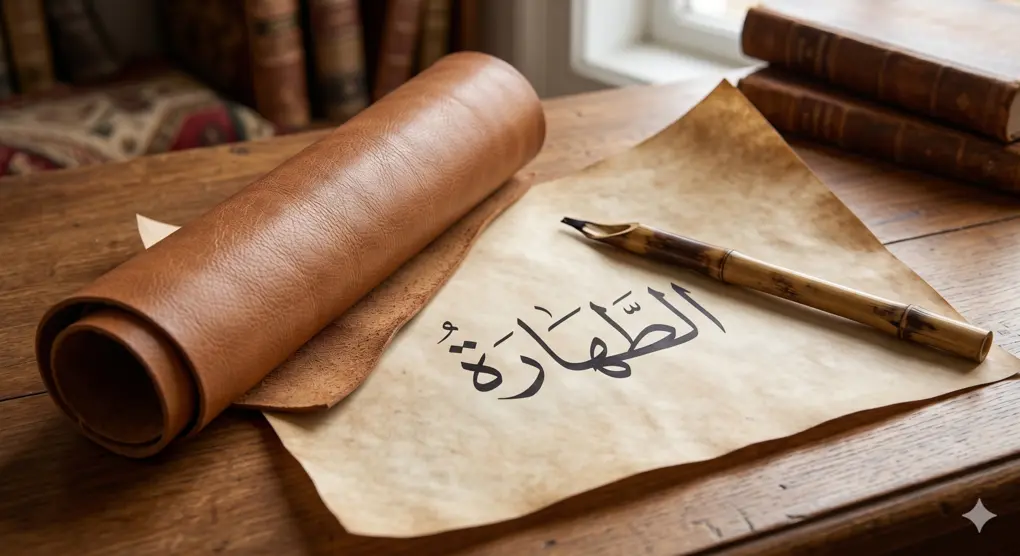 الطَّهَارَةُ